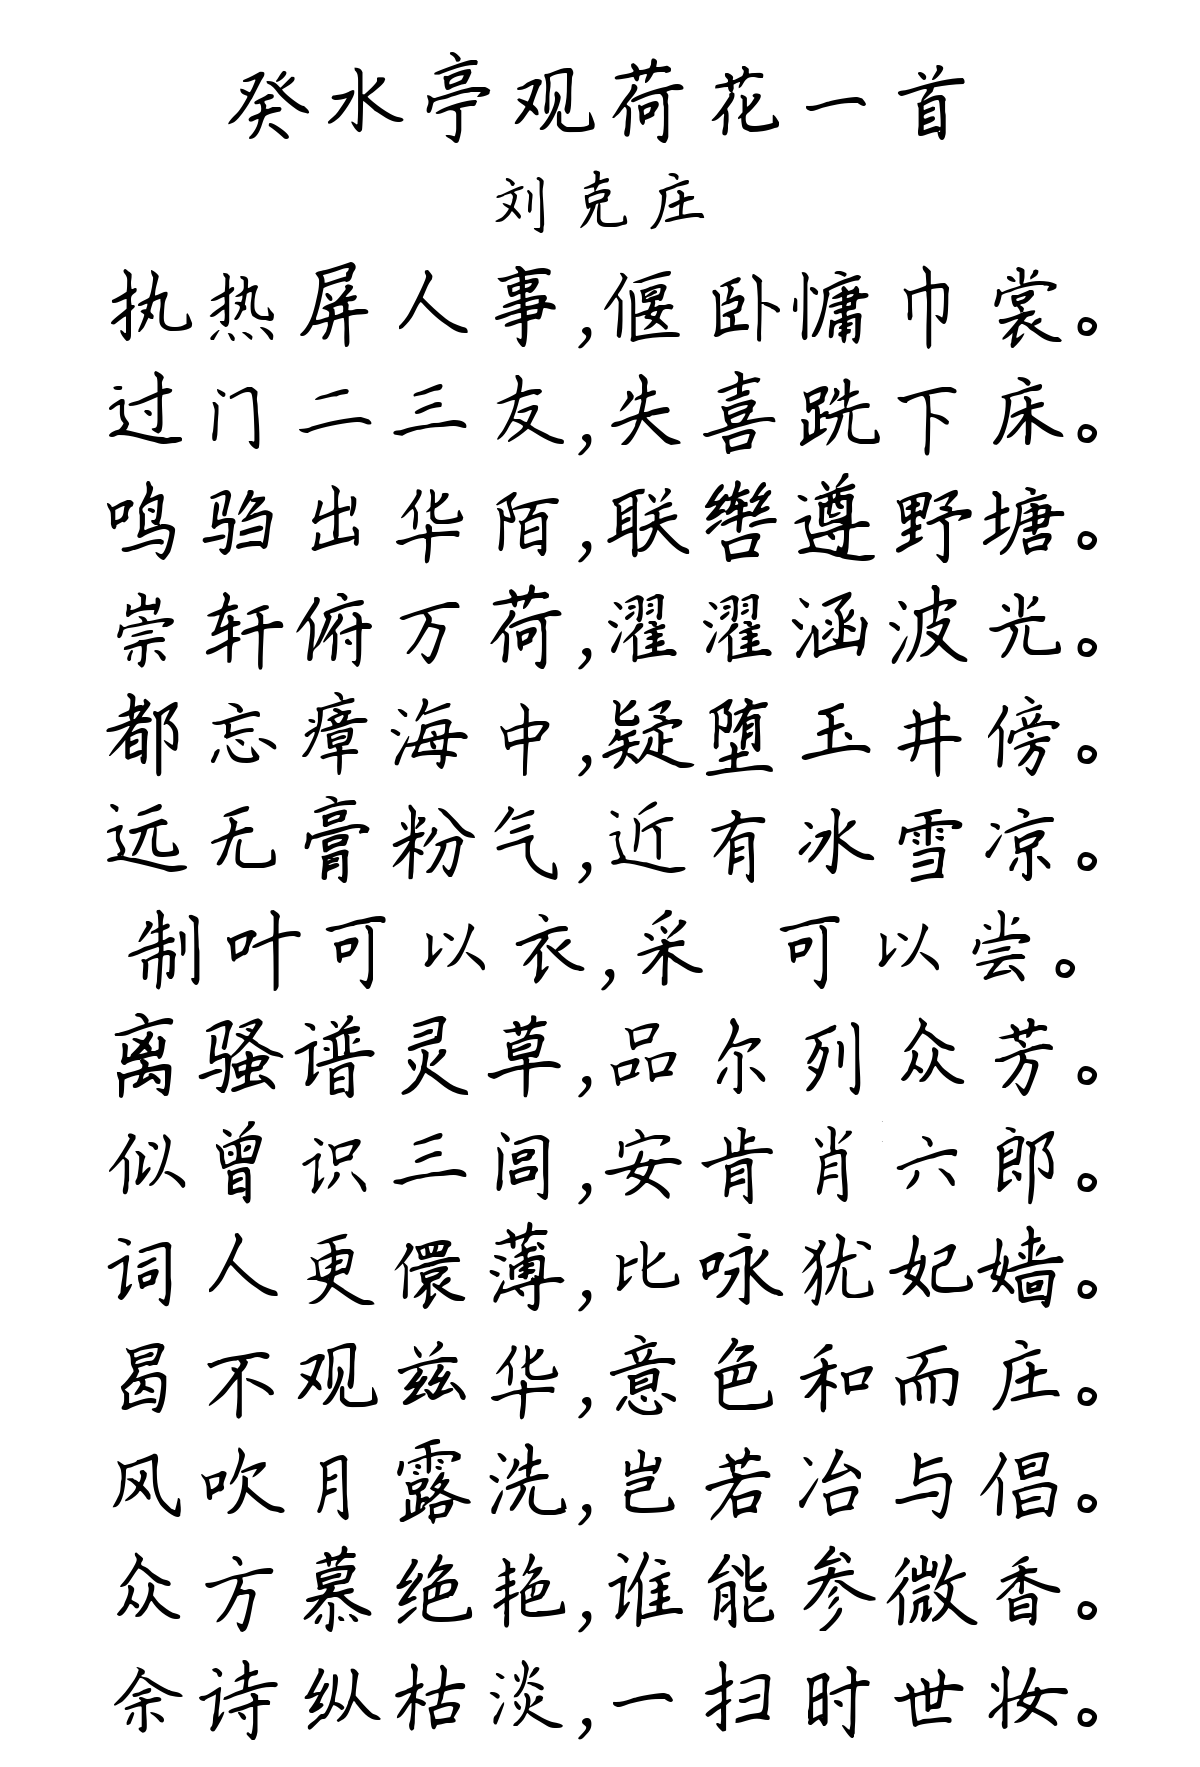 癸水亭观荷花一首
刘克庄
执热屏人事,偃卧慵巾裳。
过门二三友,失喜跣下床。
鸣驺出华陌,联辔遵野塘。
崇轩俯万荷,濯濯涵波光。
都忘瘴海中,疑堕玉井傍。
远无膏粉气,近有冰雪凉。
制叶可以衣,采 可以尝。
离骚谱灵草,品尔列众芳。
似曾识三闾,安肯肖六郎。
词人更儇薄,比咏犹妃嫱。
曷不观兹华,意色和而庄。
风吹月露洗,岂若冶与倡。
众方慕绝艳,谁能参微香。
余诗纵枯淡,一扫时世妆。